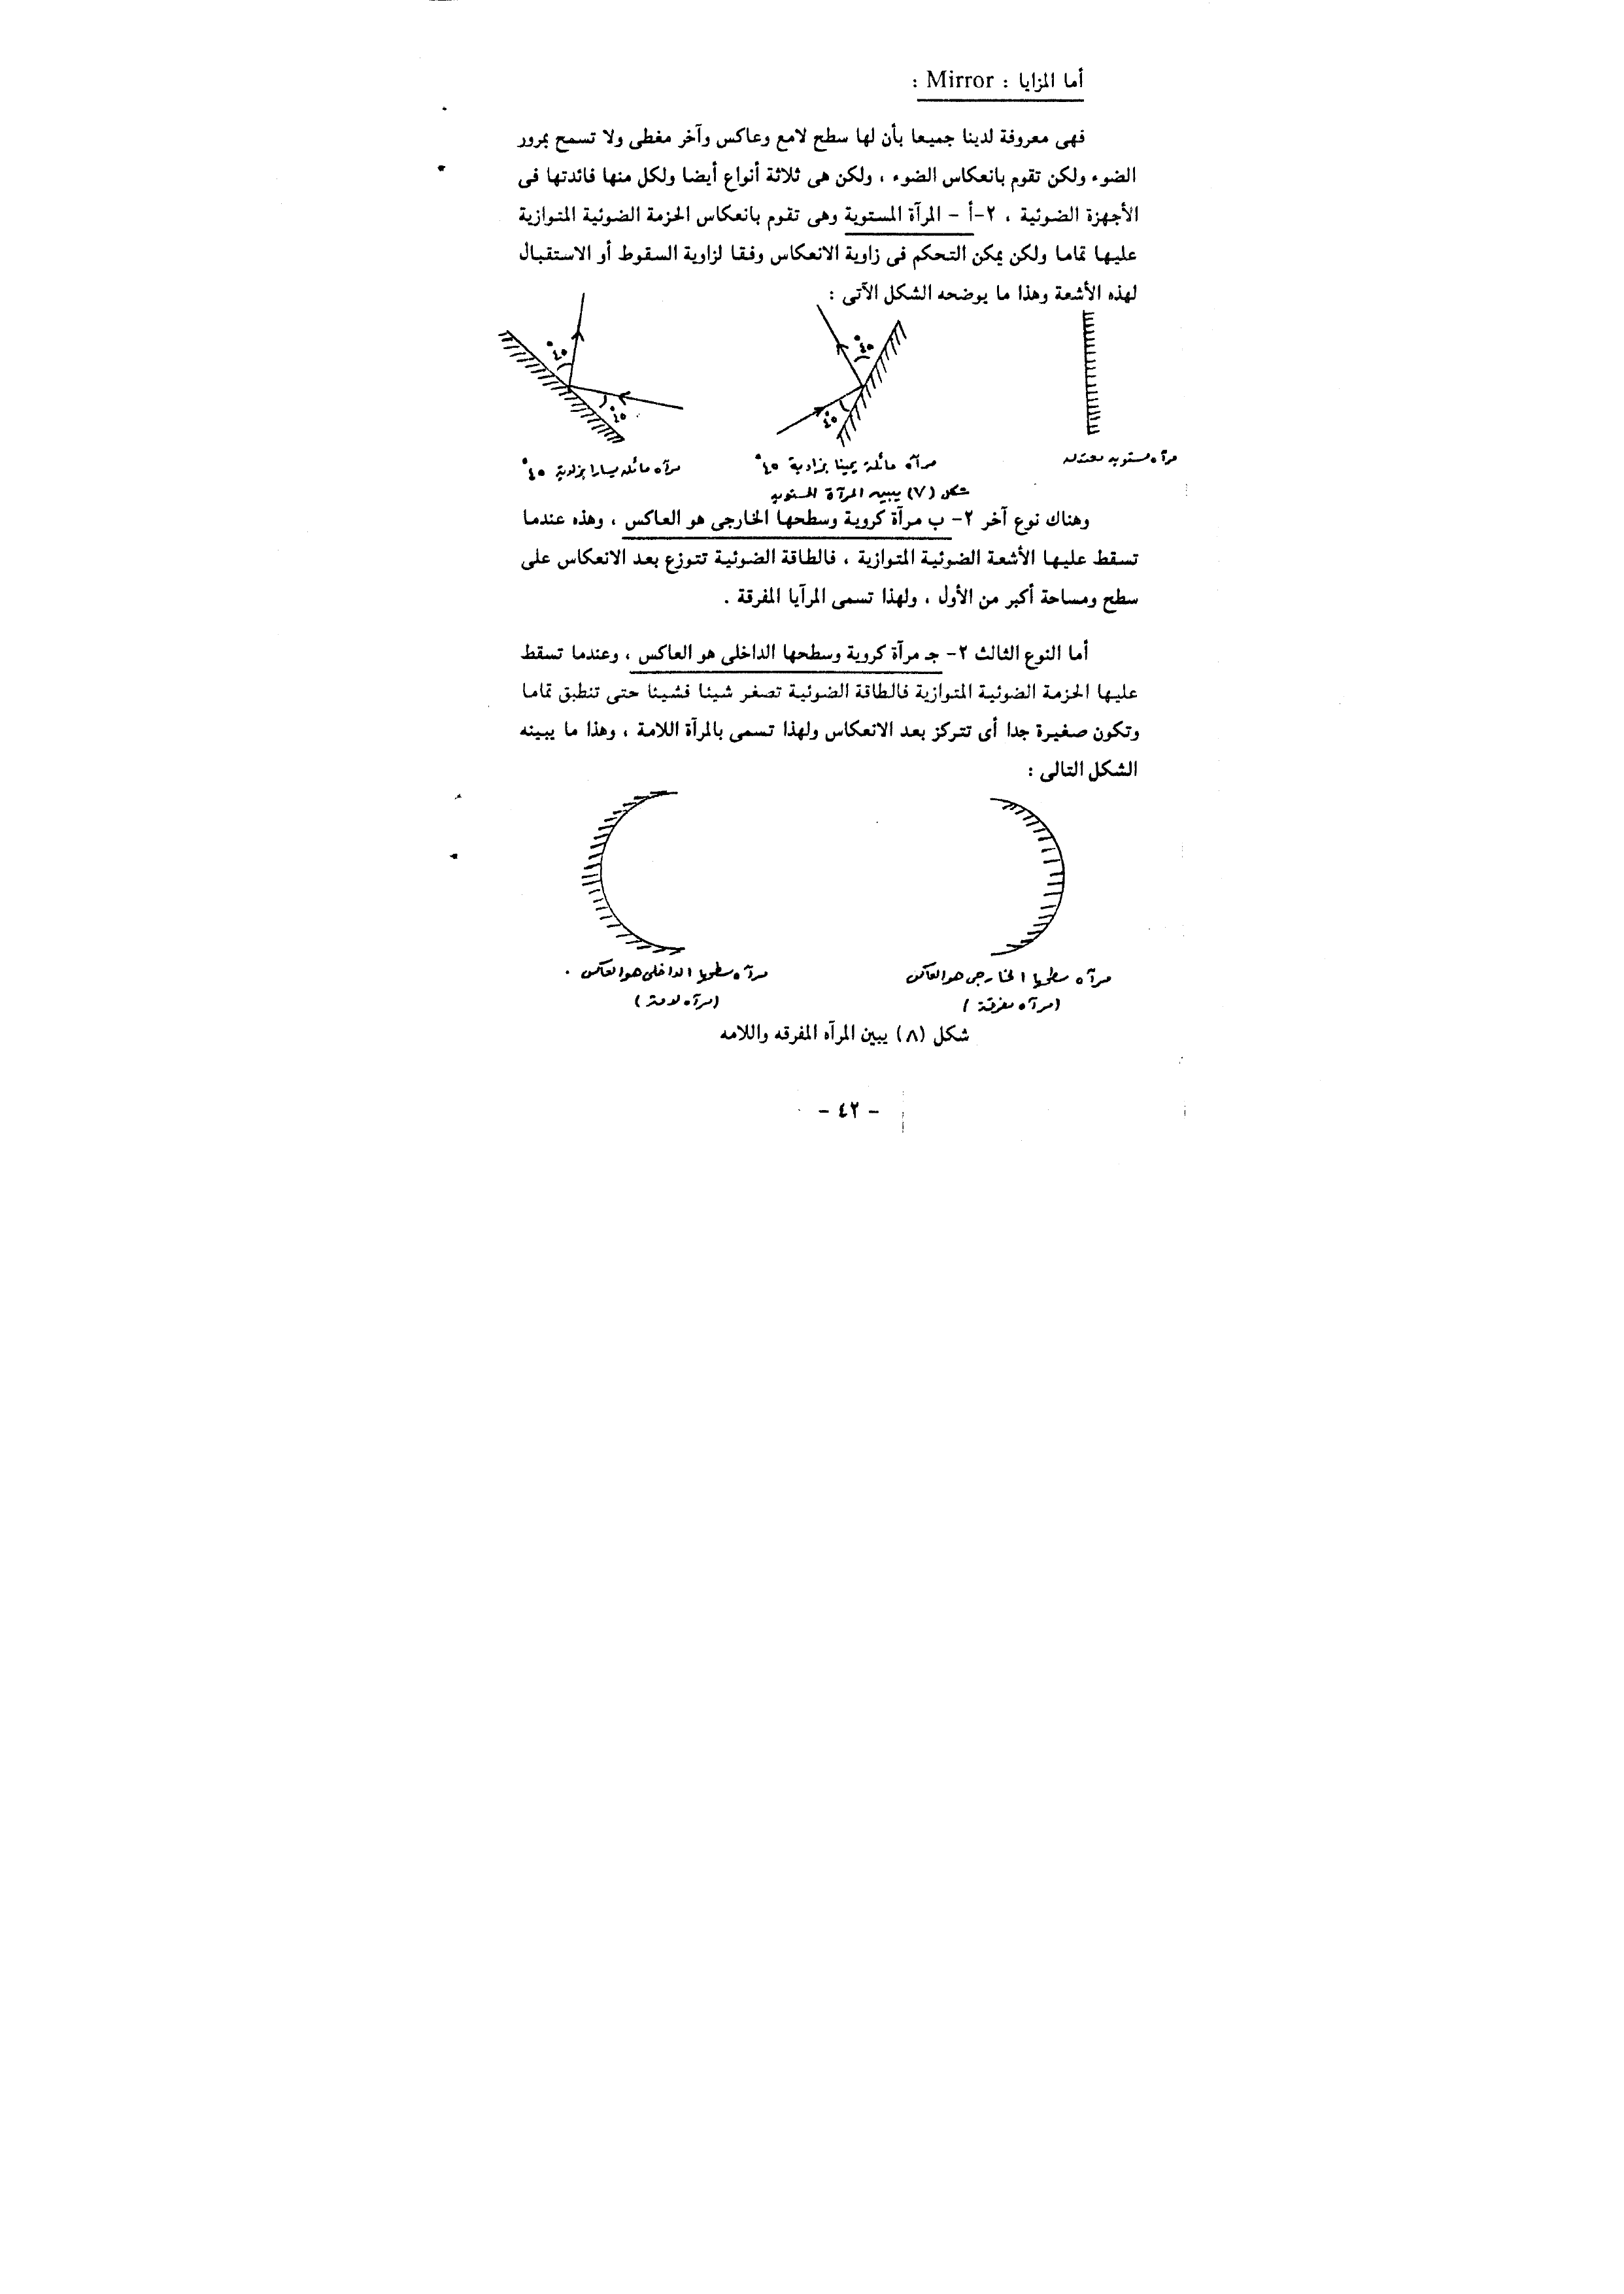 أما المزايا : Mirror :
فهى معروفة لدينا جميعا بأن لها سطح لامع وعاكس وآخر مغطى ولا تسمح بمرور
الضوء ولكن تقوم بانعكاس الضوء ، ولكن هى ثلاثة أنواع أيضا ولكل منها فائدتها فى
الأجهزة الضوئية ، ٢-أ - المرآة المستوية وهى تقوم بانعكاس الحزمة الضوئية المتوازية
عليها تماما ولكن يمكن التحكم فى زاوية الانعكاس وفقا لزاوية السقوط أو الاستقبال
لهذه الأشعة وهذا ما يوضحه الشكل الآتى :
٤٥°
٤٥°
٤٥°
٤٥°
مرآه مستويه معتدله
مرآه مائلة يمينا بزاوية ٤٥°
مرآه مائله يسارا بزاوية ٤٥°
شكل (٧) يبين المرآة المستويه
وهناك نوع آخر ٢- ب مرآة كروية وسطحها الخارجى هو العاكس ، وهذه عندما
تسقط عليها الأشعة الضوئية المتوازية ، فالطاقة الضوئية تتوزع بعد الانعكاس على
سطح ومساحة أكبر من الأول ، ولهذا تسمى المرآيا المفرقة .
أما النوع الثالث ٢- جـ مرآة كروية وسطحها الداخلى هو العاكس ، وعندما تسقط
عليها الحزمة الضوئية المتوازية فالطاقة الضوئية تصغر شيئا فشيئا حتى تنطبق تماما
وتكون صغيرة جدا أى تتركز بعد الانعكاس ولهذا تسمى بالمرآة اللامة ، وهذا ما يبينه
الشكل التالى :
مرآه سطحها الخارجى هو العاكس
(مرآه مفرقة)
مرآه سطحها الداخلى هو العاكس .
(مرآه لامة)
شكل (٨) يبين المرآه المفرقه واللامه
- ٤٢ -